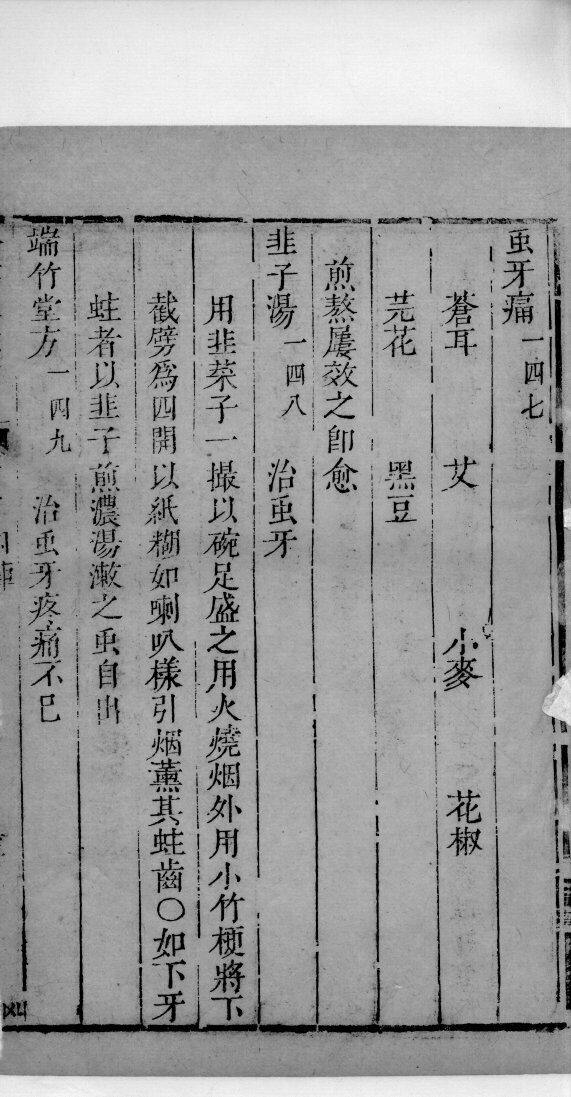 虫牙痛一四七
蒼耳 艾 小麥 花椒
芫花 黑豆
煎熬屢效之卽愈
韭子湯一四八 治虫牙
用韭菜子一撮以碗足盛之用火燒烟外用小竹梗將下
截劈爲四開以紙糊如喇叭樣引烟薰其蛀齒〇如下牙
蛀者以韭子煎濃湯漱之虫自出
端竹堂方一四九 治虫牙疼痛不已